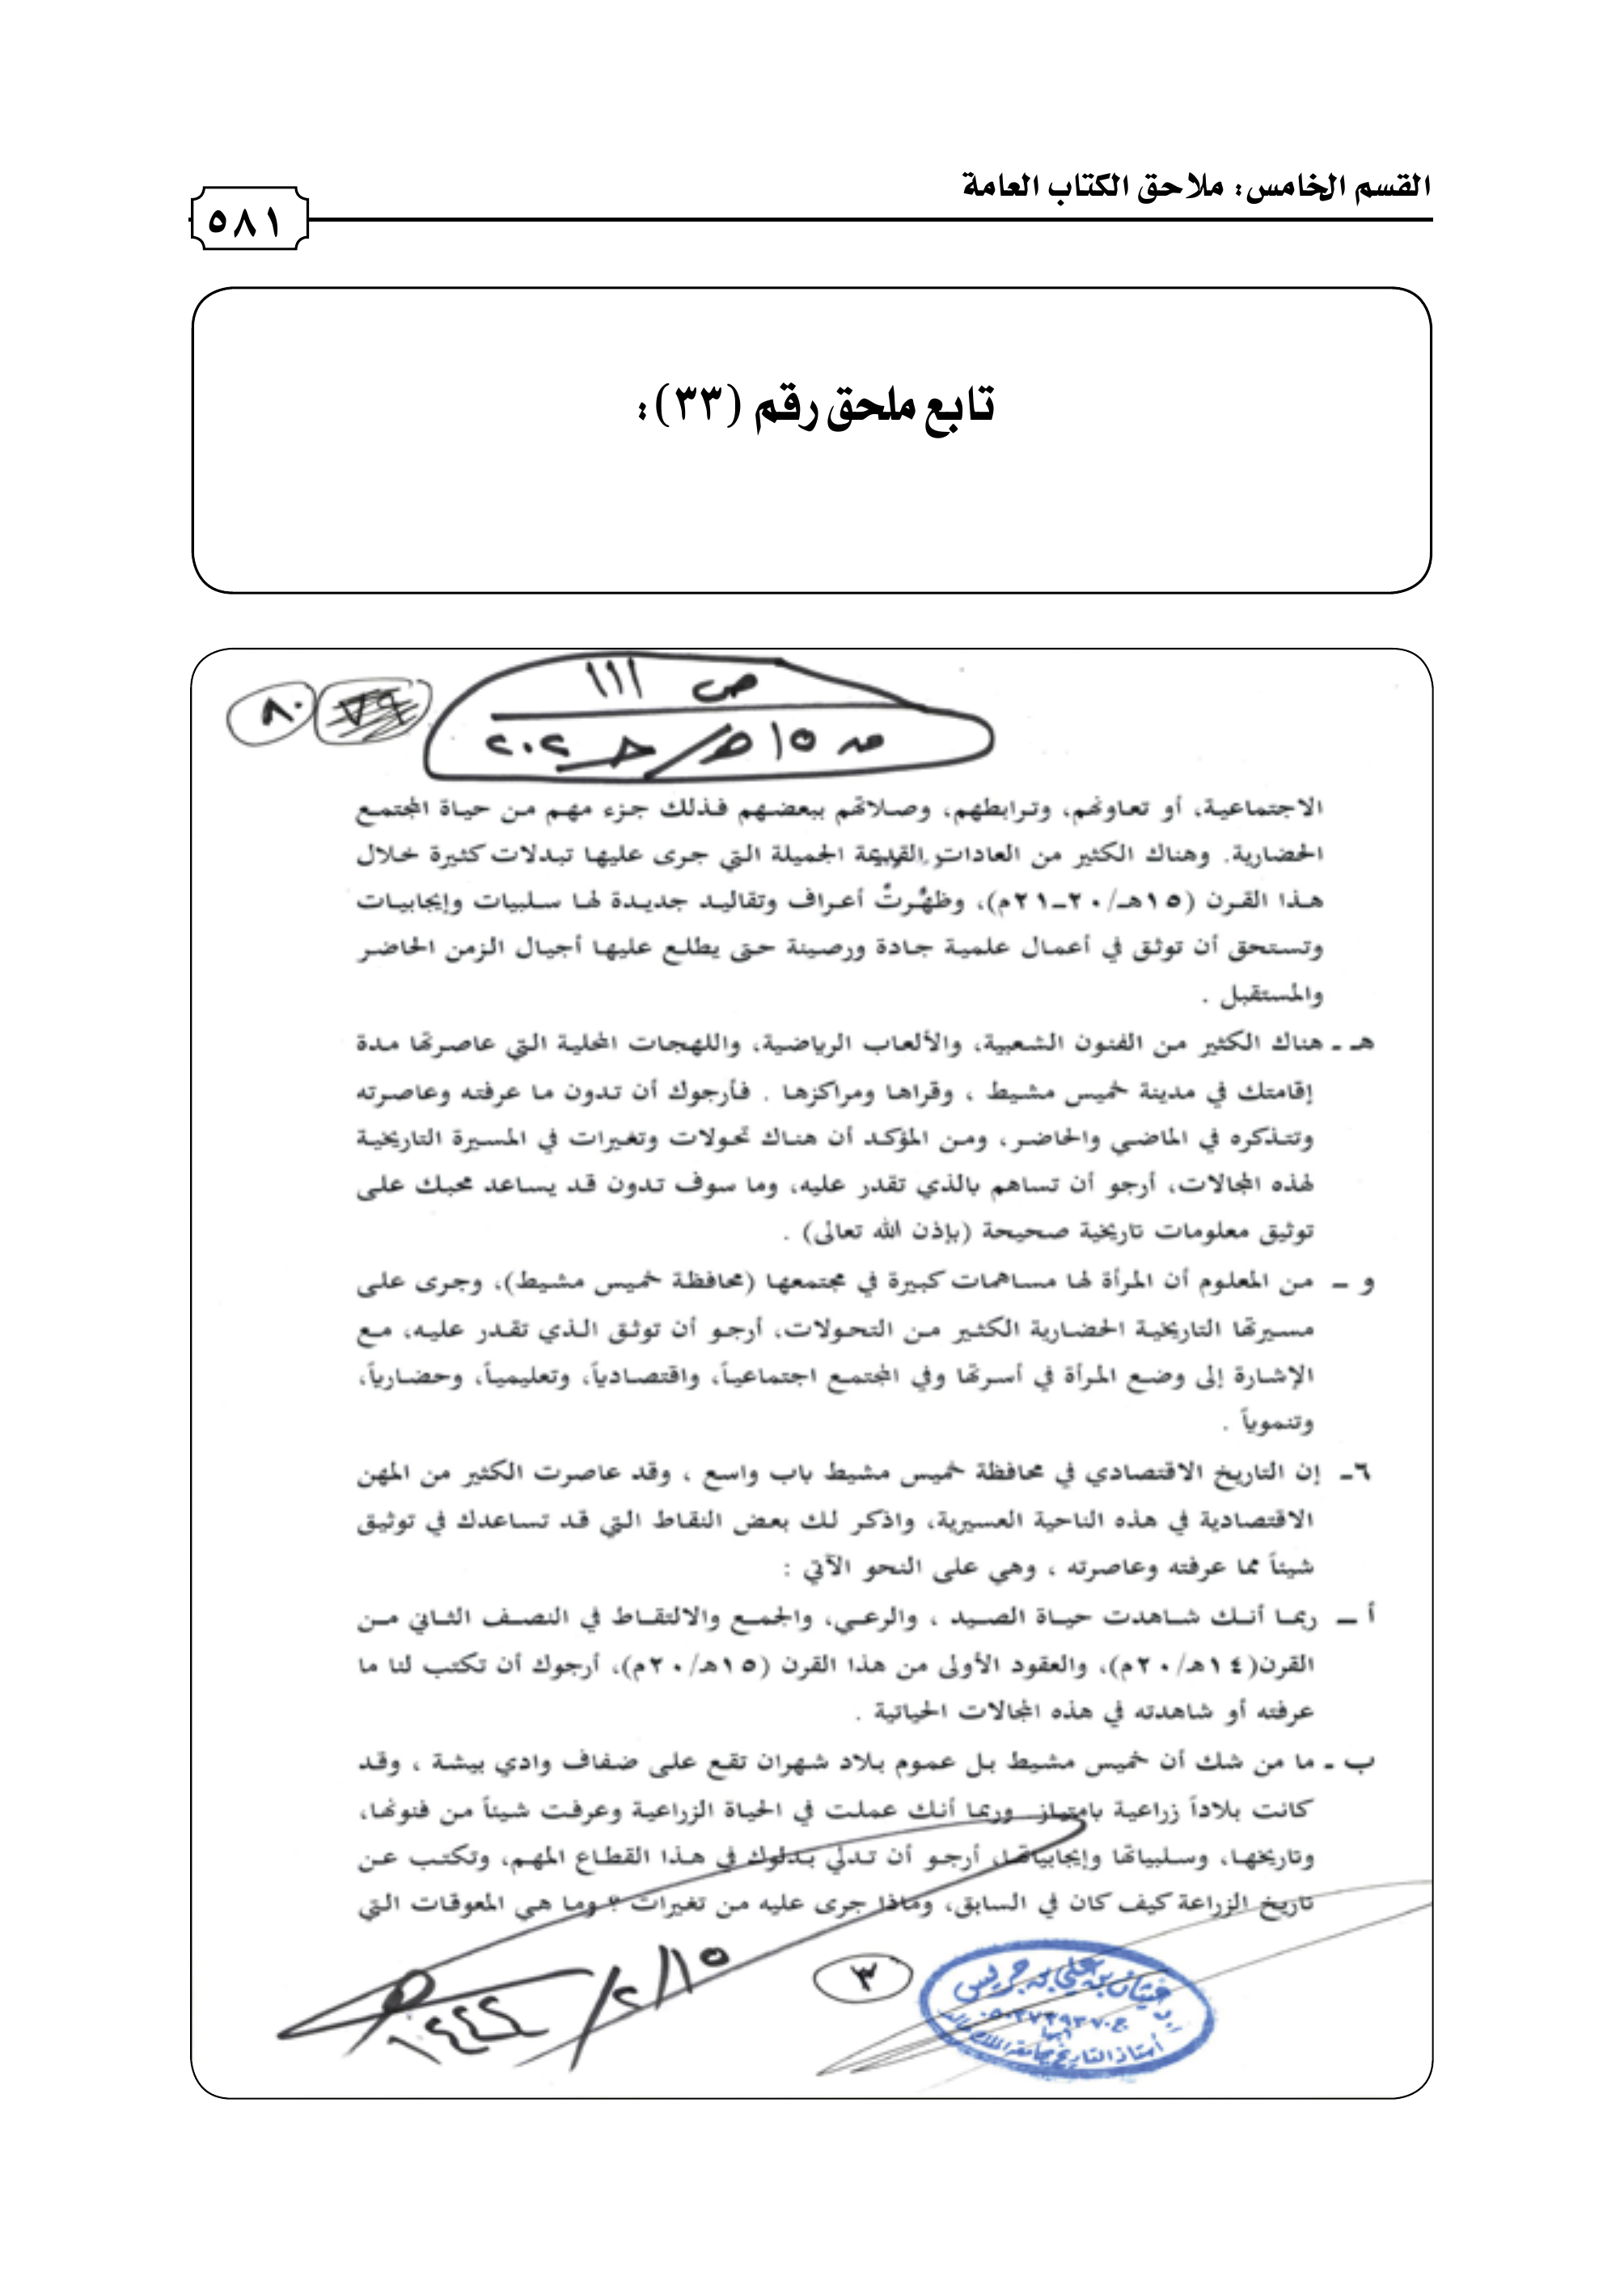 القسم الخامس: ملاحق الكتاب العامة
٥٨١
تابع ملحق رقم (٣٣):
ص ١١١
٨٠
الاجتماعية، أو تعاونهم، وترابطهم، وصلاتهم ببعضهم فذلك جزء مهم من حياة المجتمع
الحضارية. وهناك الكثير من العادات القديمة الجميلة التي جرى عليها تبدلات كثيرة خلال
هذا القرن (١٥هـ/٢٠ــ٢١م)، وظهرت أعراف وتقاليد جديدة لها سلبيات وإيجابيات
وتستحق أن توثق في أعمال علمية جادة ورصينة حتى يطلع عليها أجيال الزمن الحاضر
والمستقبل .
هـ ـ هناك الكثير من الفنون الشعبية، والألعاب الرياضية، واللهجات المحلية التي عاصرتها مدة
إقامتك في مدينة خميس مشيط ، وقراها ومراكزها . فأرجوك أن تدون ما عرفته وعاصرته
وتتذكره في الماضي والحاضر، ومن المؤكد أن هناك تحولات وتغيرات في المسيرة التاريخية
لهذه المجالات، أرجو أن تساهم بالذي تقدر عليه، وما سوف تدون قد يساعد محبك على
توثيق معلومات تاريخية صحيحة (بإذن الله تعالى) .
و ـ من المعلوم أن المرأة لها مساهمات كبيرة في مجتمعها (محافظة خميس مشيط)، وجرى على
مسيرتها التاريخية الحضارية الكثير من التحولات، أرجو أن توثق الذي تقدر عليه، مع
الإشارة إلى وضع المرأة في أسرتها وفي المجتمع اجتماعياً، واقتصادياً، وتعليمياً، وحضارياً،
وتنموياً .
٦ـ إن التاريخ الاقتصادي في محافظة خميس مشيط باب واسع ، وقد عاصرت الكثير من المهن
الاقتصادية في هذه الناحية العسيرية، واذكر لك بعض النقاط التي قد تساعدك في توثيق
شيئاً مما عرفته وعاصرته ، وهي على النحو الآتي :
أ ــ ربما أنك شاهدت حياة الصيد ، والرعي، والجمع والالتقاط في النصف الثاني من
القرن(١٤هـ/٢٠م)، والعقود الأولى من هذا القرن (١٥هـ/٢٠م)، أرجوك أن تكتب لنا ما
عرفته أو شاهدته في هذه المجالات الحياتية .
ب ـ ما من شك أن خميس مشيط بل عموم بلاد شهران تقع على ضفاف وادي بيشة ، وقد
كانت بلاداً زراعية بامتياز وربما أنك عملت في الحياة الزراعية وعرفت شيئاً من فنونها،
وتاريخها، وسلبياتها وإيجابياتها، أرجو أن تدلي بدلوك في هذا القطاع المهم، وتكتب عن
تاريخ الزراعة كيف كان في السابق، وماذا جرى عليه من تغيرات ؟ وما هي المعوقات التي
٣
١٥/٢/١٤٤٢
غيثان بن علي بن جريس